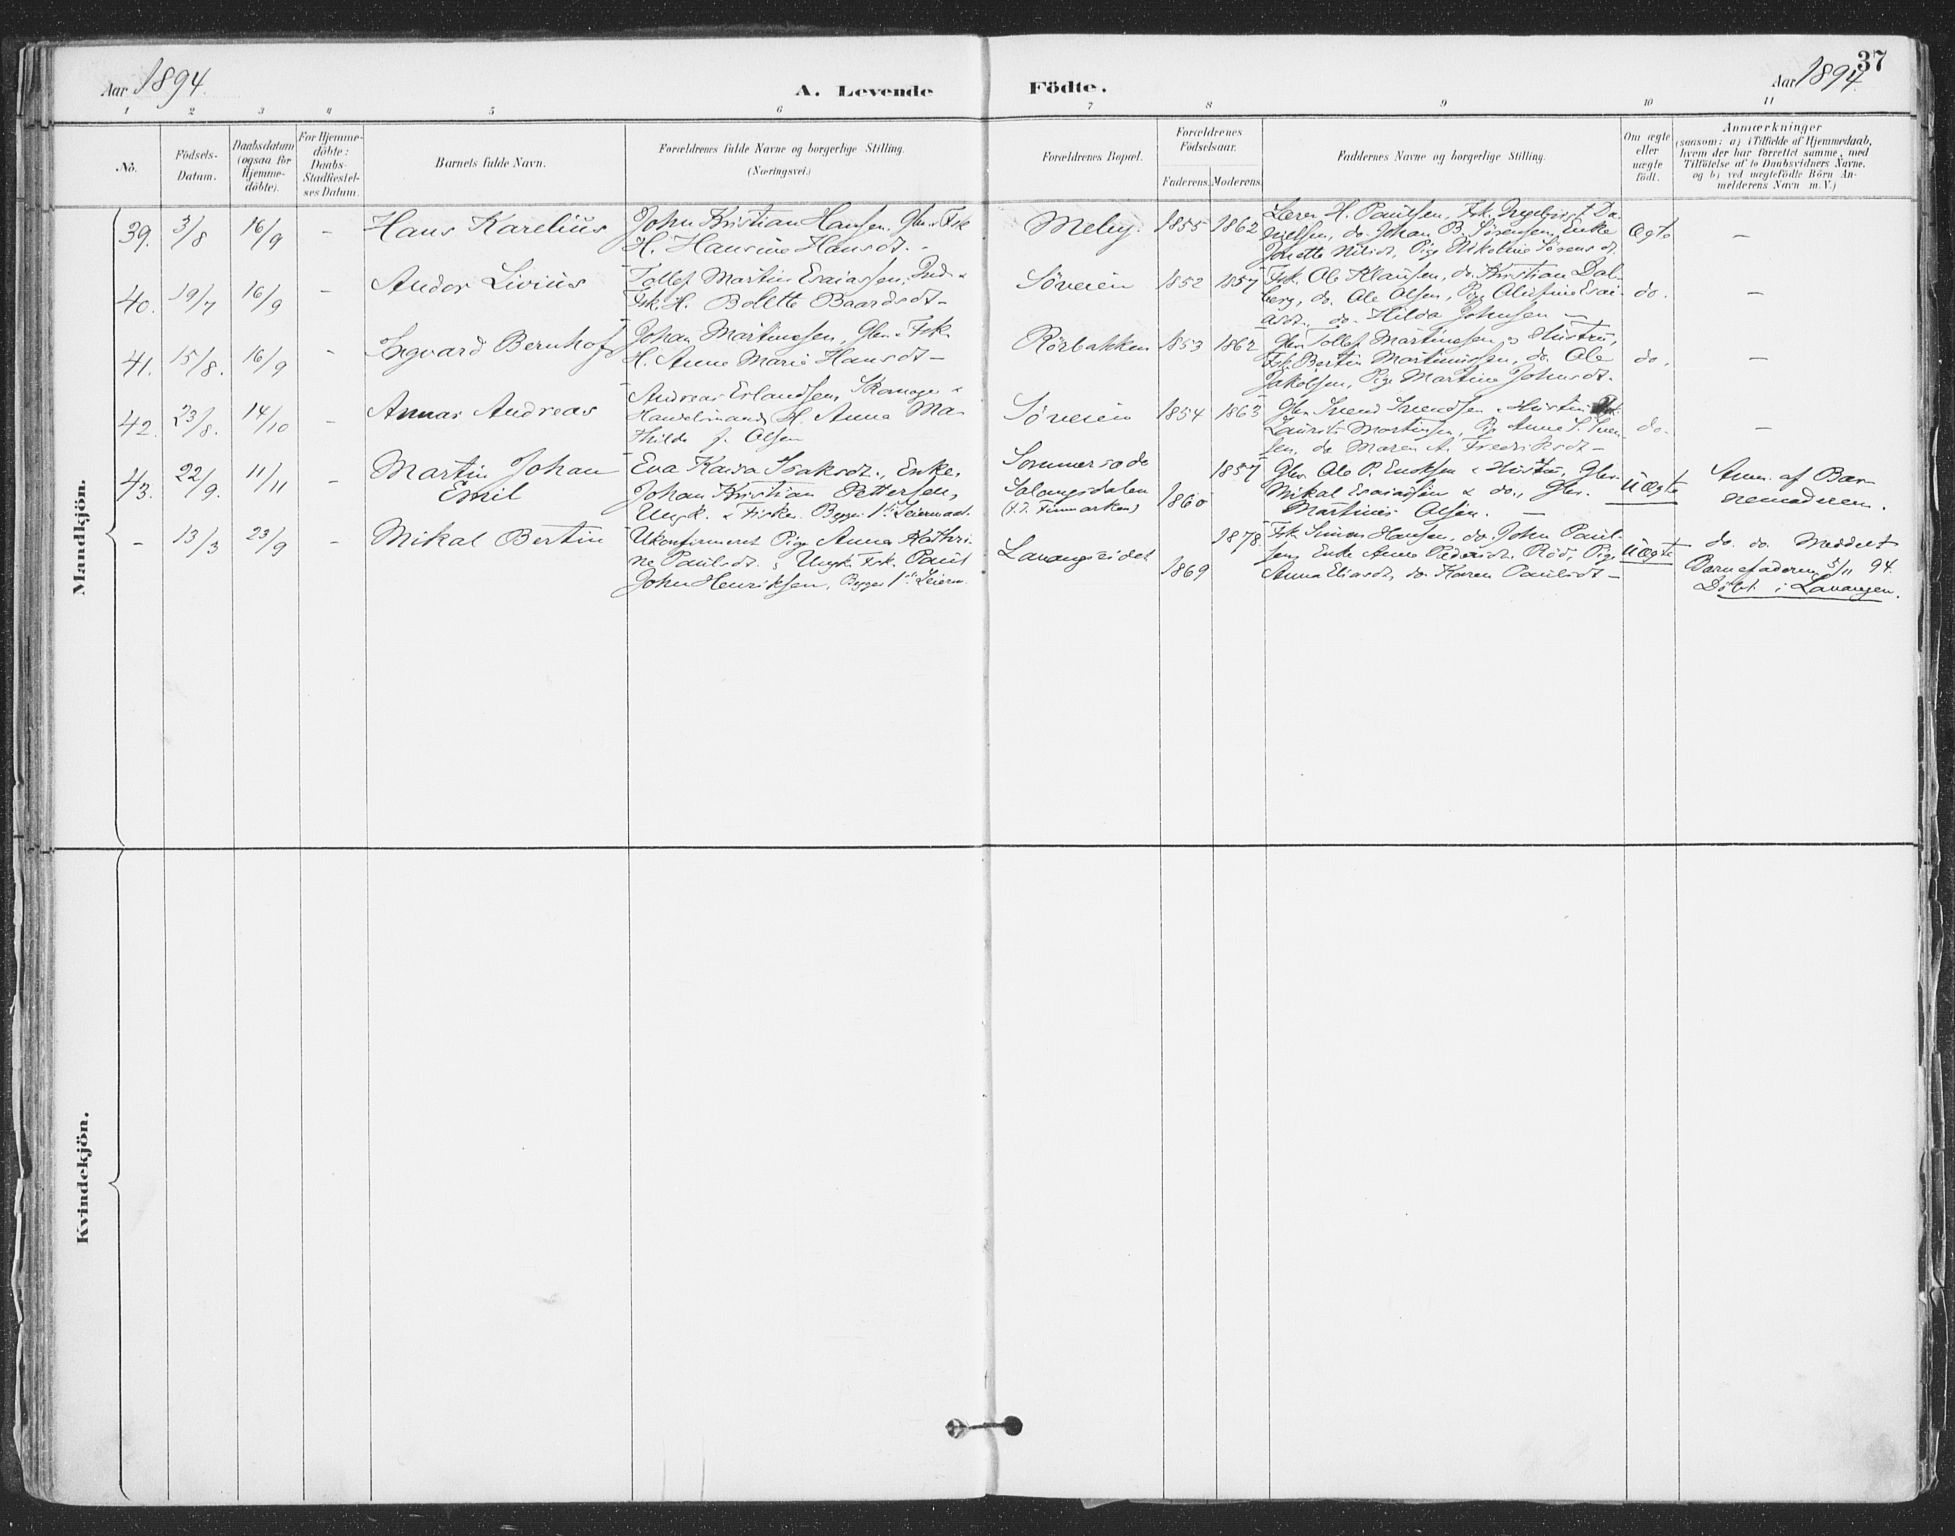 37
Aar 1894. A. Levende Födte. Aar 1894.
1 2 3 4 5 6 7 8 9 10 11
No.
Födsels-
Datum.
Daabsdatum
(ogsaa for
Hjemme-
döbte).
For Hjemme-
döbte:
Daabs-
Stadfæstel-
ses Datum.
Barnets fulde Navn.
Forældrenes fulde Navne og borgerlige Stilling.
(Næringsvei.)
Forældrenes Bopæl.
Forældrenes
Födselsaar.
Faderens. Moderens.
Faddernes Navne og borgerlige Stilling.
Om ægte
eller
uægte
födt.
Anmærkninger
(saasom: a) i Tilfælde af Hjemmedaab,
hvem der har forrettet samme, med
Tilföielse af to Daabsvidners Navne,
og b) ved uægtefödte Börn An-
melderens Navn m. V.)
Mandkjön.
39. 3/8 16/9 - Hans Karelius
John Kristian Hansen, Gbr. Fsk
H. Hansine Hansdt. -
Meby. 1855 1862
Lærer H. Paulsen, Fsk. Ingebrigt Da-
nielsen, do. Johan B. Sørensen, Enke
Jonette Nilsdt, Pige Nikoline Sørensdt
Ægte -
40. 19/7 16/9 - Andor Livius
Tollef Martin Esaiassen, Ind. &
Fsk. H. Bolette Baardsdt -
Søveien 1852 1857
Fsk. Ole Klausen, do. Kristian Dal-
berg, do. Ole Olsen, Pige Esai-
asdt. do. Hilda Johnsen -
do. -
41. 15/8. 16/9 - Ingvard Bernhof
Johan Martinussen, Gbr. Fsk.
H. Anne Marie Hansdt -
Rørbakken 1853 1862
Gbr. Tollef Martinussen og Hustru,
Fsk. Bertin Martinussen, do. Ole
Jakobsen, Pige Martine Johnsdt.
do. -
42. 23/8. 14/10 - Annar Andreas
Andreas Erlandsen, Skomager &
Handelsmand, H. Anna Ma-
thilde f. Olsen
Søveien 1854 1863
Gbr. Svend Svendsen & Hustru,
Laurits Martinsen, Pg. Anne S. Sven-
sen, do Maren A. Fredriksdt -
do. -
43. 22/9. 11/11 - Martin Johan
Emil
Eva Kaisa Isaksdt., Enke,
Johan Kristian Pettersen,
Ungk. & Fisker. Begges 1ste Leiermaal.
Sommersæde
Salangsdalen
(f.T. Finmarken)
1860 1857
Gbr. Ole P. Enoksen & Hustru, Gbr.
Mikal Esaiassen & do., Gbr.
Martinus Olsen. -
Uægte
Anm. af Bar-
nemoderen.
- 13/3 23/9 - Mikal Bertin
Ukonfirmeret Pige Anna Kathri-
ne Paulsdt. & Ungk. Fsk. Paul
John Henriksen, Begges 1ste Leierm.
Lavangseidet 1869 1878
Fsk. Simon Hansen, do. John Paul-
sen, Enke Anne Pedersdt. Rød, Pige
Anna Eliasdt, do Karen Paulsdt -
Uægte
do. do. Meddelt
Barnefaderen 5/11 94.
Døbt i Lavangen.
Kvindekjön.